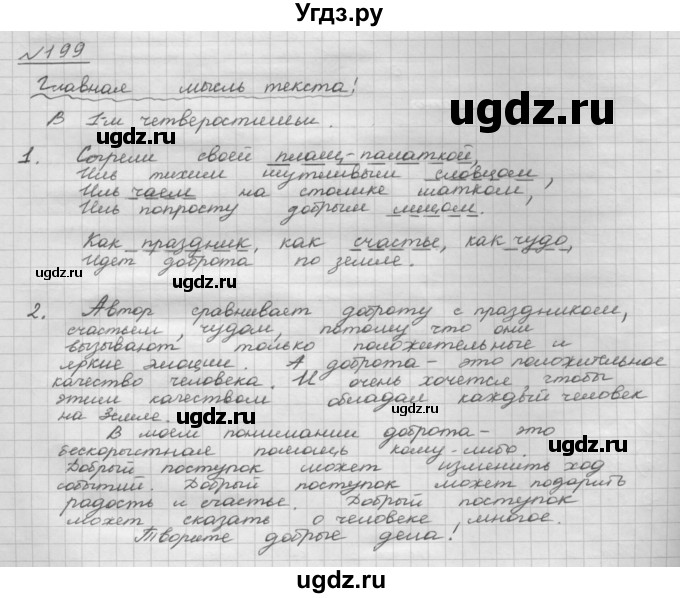 Угдз.ру
№199
Главная мысль текста!
В 1-м четверостишьи.
1. Согрели своей плащ-палаткой,
Иль тихим шутливым словцом,
Иль чаем на столике шатком,
Иль попросту добрым лицом.
Как праздник, как счастье, как чудо,
Идет доброта по земле.
2. Автор сравнивает доброту с праздником,
счастьем, чудом, потому что они
вызывают только положительные и
яркие эмоции. А доброта - это положительное
качество человека. И очень хочется, чтобы
этим качеством обладал каждый человек
на Земле.
В моем понимании доброта - это
бескорыстная помощь кому-либо.
Добрый поступок может изменить ход
событий. Добрый поступок может подарить
радость и счастье. Добрый поступок
может сказать о человеке многое.
Творите добрые дела!
ugdz.ru
ugdz.ru
ugdz.ru
ugdz.ru
ugdz.ru
ugdz.ru
ugdz.ru
ugdz.ru
ugdz.ru
ugdz.ru
ugdz.ru
ugdz.ru